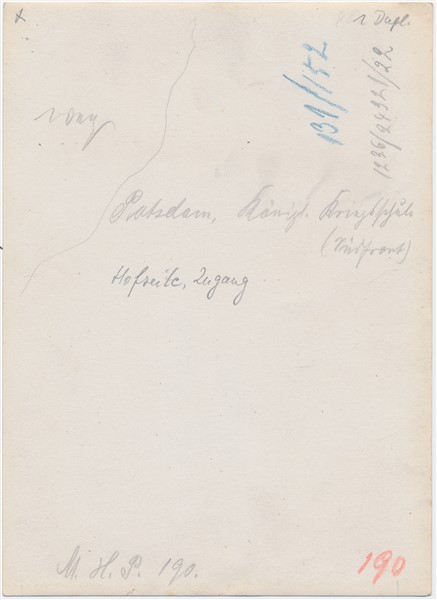 x
1 Dupl.
131/152
1236/24321/22
weg
Potsdam, Königl. Kriegsschule
(Südfront)
Hofseite, Zugang
M. H. P. 190.
190